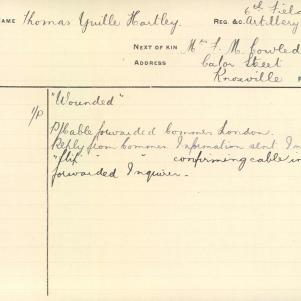 6th Field
NAME Thomas Yuille Hartley. REG. &C. Artillery
NEXT OF KIN Mrs F. M. Cowled
ADDRESS Cator Street
Knoxville
"Wounded"
1/P D/Cable forwarded Commer London.
Reply from Commer. Information sent In
" " confirming cable in
forwarded Inquirer.